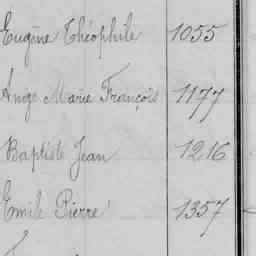 Eugène Théophile 1055
Ange Marie François 1177
Baptiste Jean 1216
Emile Pierre 1357